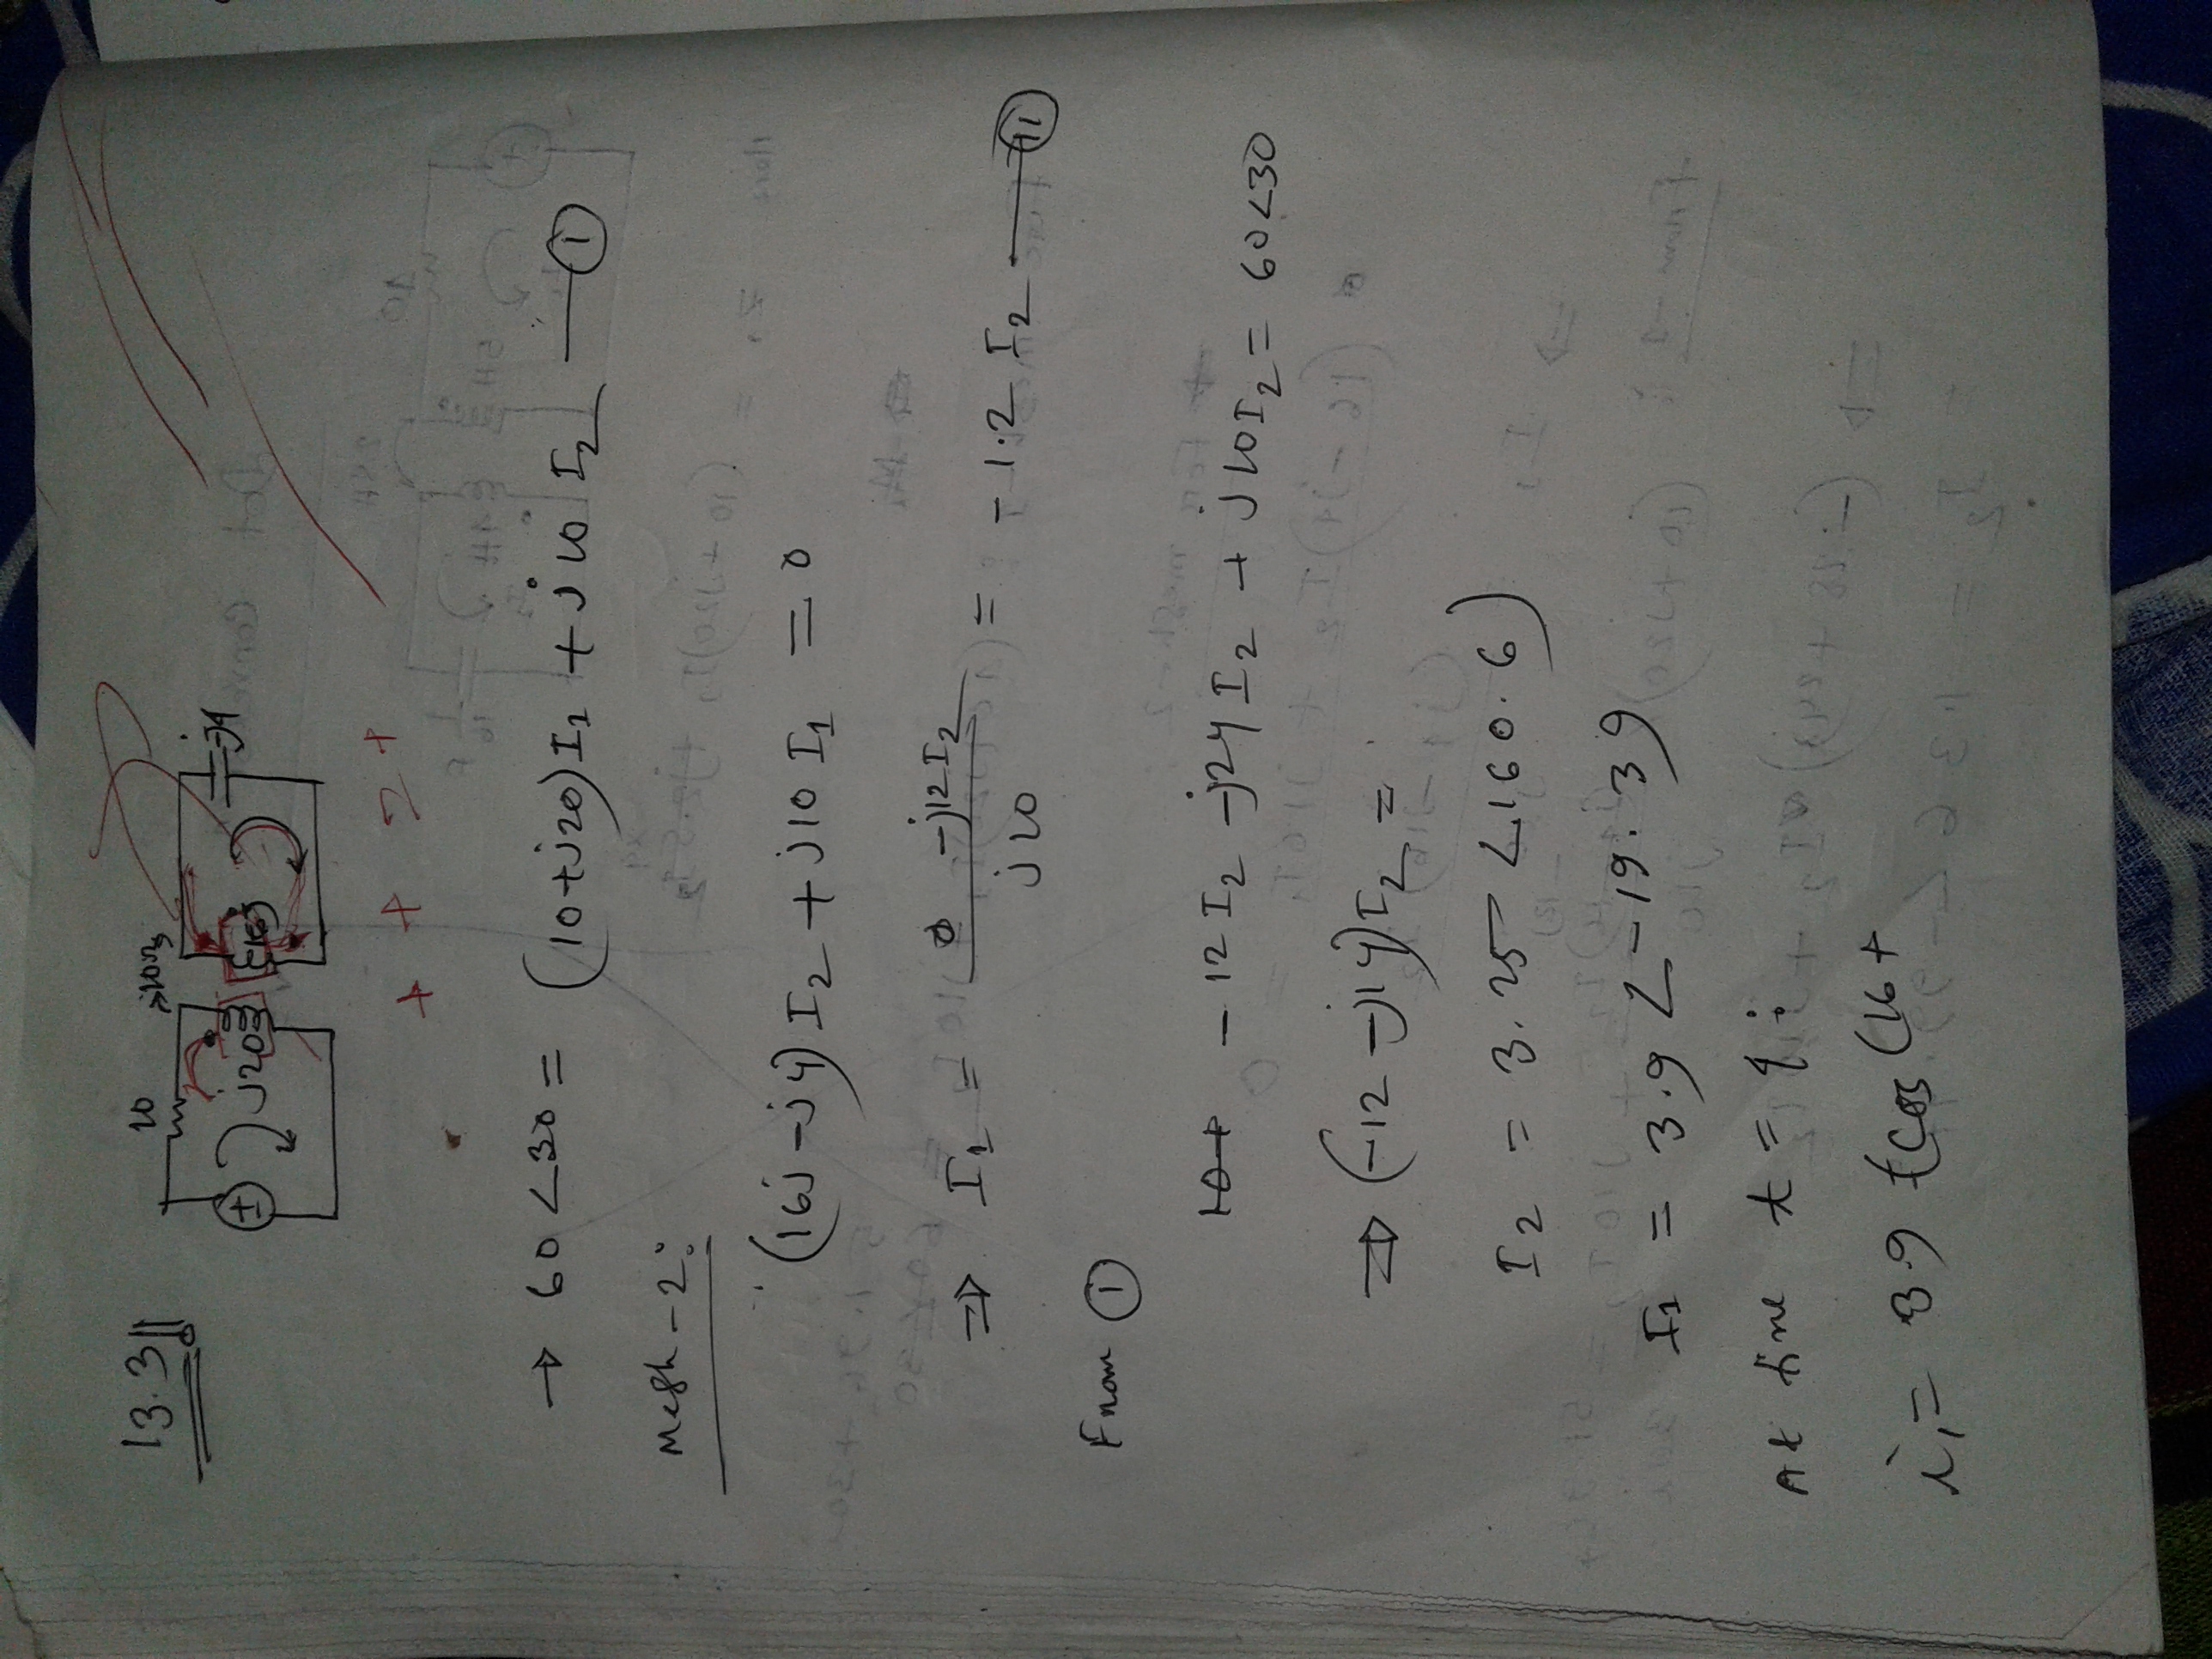 13.3
10
j10Ω
j20
16j
-j4
+ + 2 +
→ 60∠30 = (10+j20)I₁ + j10 I₂ — ①
Mesh-2:
(16j-j4) I₂ + j10 I₁ = 0
⇒ I₁ = 0 -j12 I₂ / j10 = -1.2 I₂ — ⑪
From ①
10+ -12 I₂ -j24 I₂ + j10 I₂ = 60∠30
⇒ (-12 -j14) I₂ =
I₂ = 3.25 ∠160.6)
I₁ = 3.9 ∠-19.39
At time t =
i₁ = 3.9 cos (16+